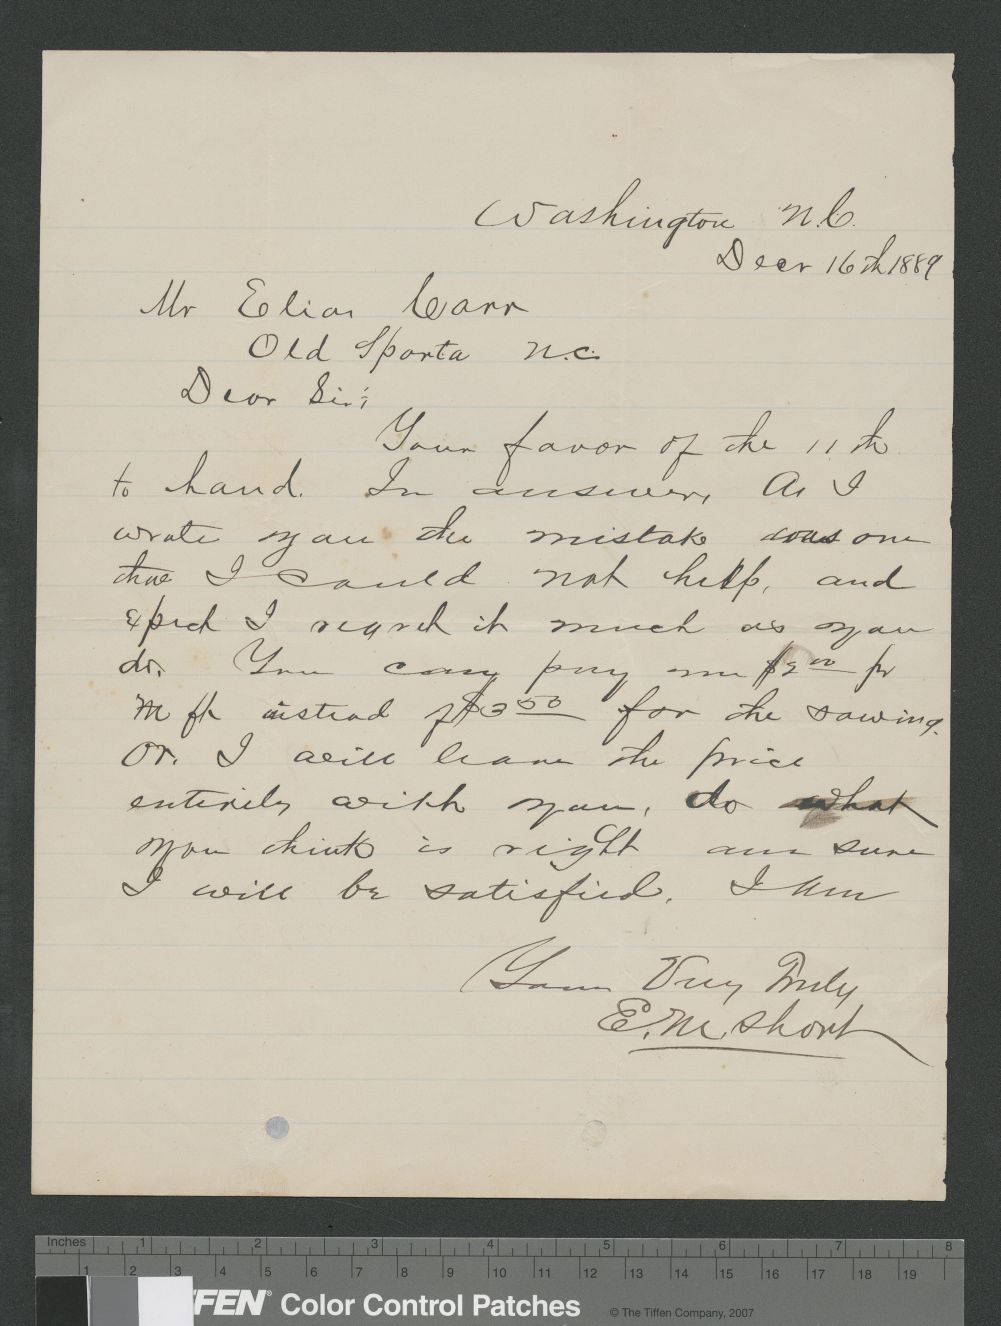 Washington N.C.
Decr 16th 1889
Mr Elias Carr
Old Sparta N.C.
Dear Sir:
Your favor of the 11th
to hand. In answer, As I
wrote you the mistake was one
that I could not help, and
expect I regret it much as you
do. You can pay me $2 00 pr
M ft instead of $3 50 for the sawing.
Or, I will leave the price
entirely with you, do what
you think is right am sure
I will be satisfied. I am
Yours Very Truly
E. M Short
Inches 1 2 3 4 5 6 7 8
1 2 3 4 5 6 7 8 9 10 11 12 13 14 15 16 17 18 19
FFEN® Color Control Patches © The Tiffen Company, 2007